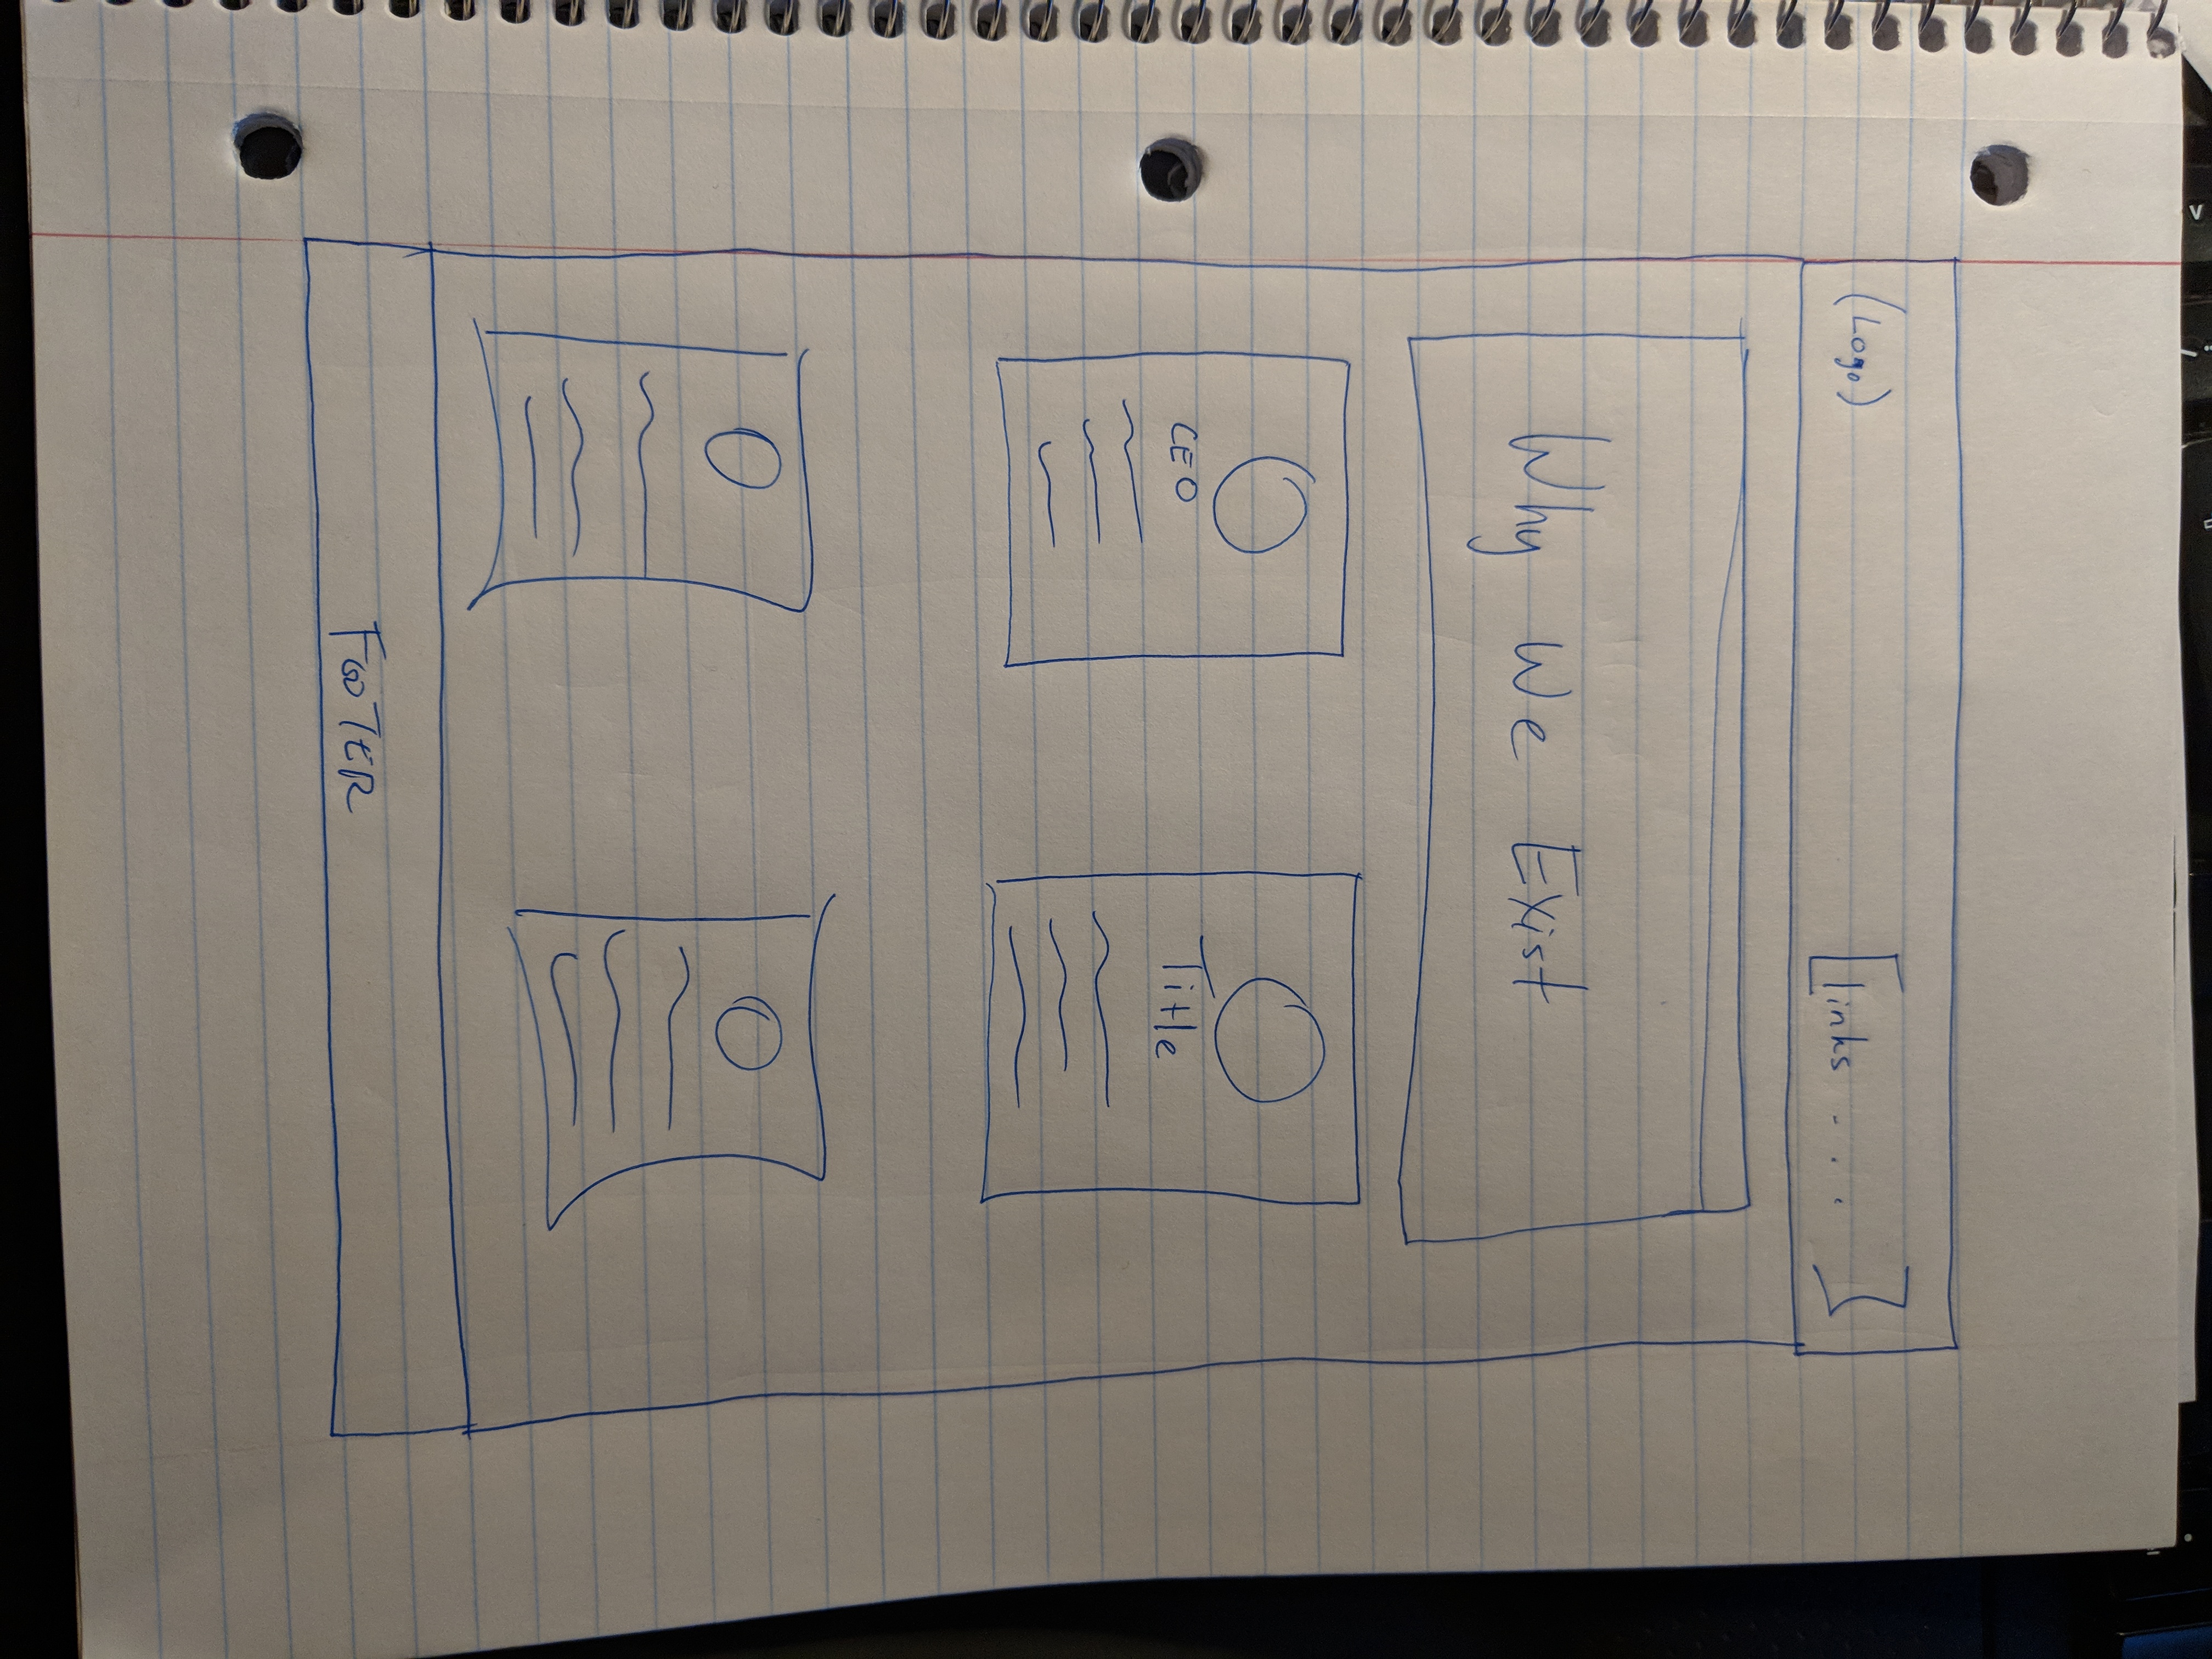 (Logo)
links - . . .
Why We Exist
CEO
Title
FOOTER